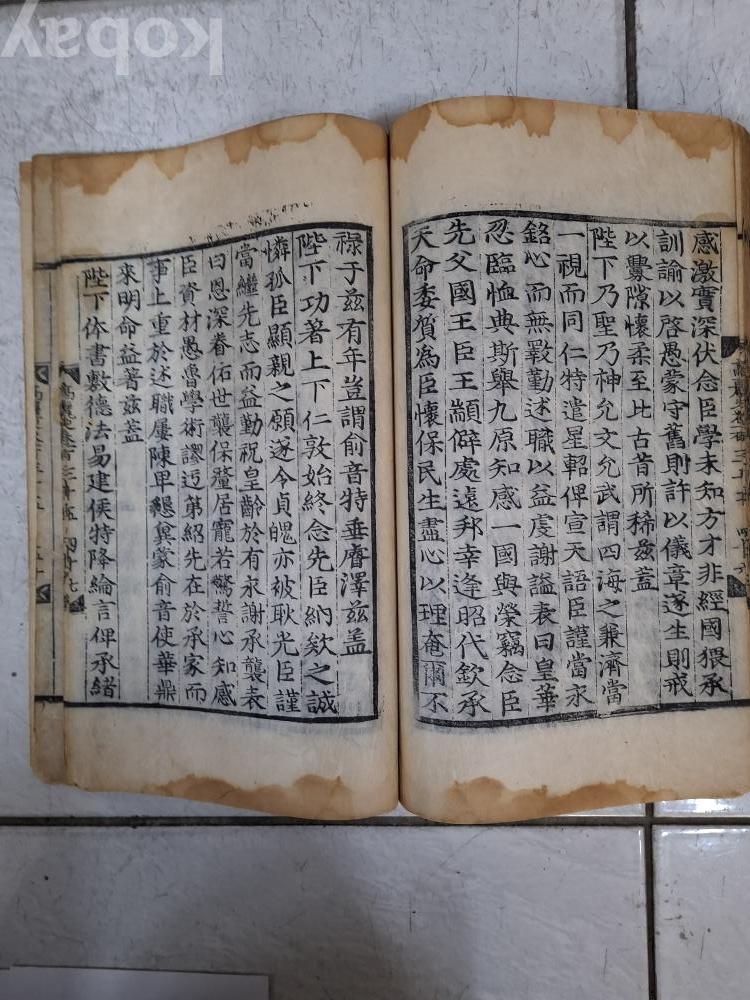 kobay
感激實深伏念臣學未知方才非經國猥承
訓諭以啓愚蒙守舊則許以儀章遂生則戒
以釁隙懷柔至比古昔所稀兹盖
陛下乃聖乃神允文允武謂四海之兼濟當
一視而同仁特遣星軺俾宣天語臣謹當永
銘心而無斁勤述職以益虔謝謚表曰皇華
忍臨恤典斯舉九原知感一國與榮竊念臣
先父國王臣王顓僻處遠邦幸逢昭代欽承
天命委質爲臣懷保民生盡心以理奄爾不
祿于玆有年豈謂俞音特垂膚澤玆盖
陛下功著上下仁敦始終念先臣納欵之誠
憐孤臣顯親之願遂令貞魄亦被耿光臣謹
當繼先志而益勤祝皇齡於有永謝承襲表
曰恩深眷佑世襲保釐居寵若驚誓心知感
臣資材愚魯學術謬迂第紹先在於承家而
事上重於述職屢陳卑懇兾蒙俞音使華鼎
來明命益著玆盖
陛下体書敷德法易建侯特降綸言俾承緒